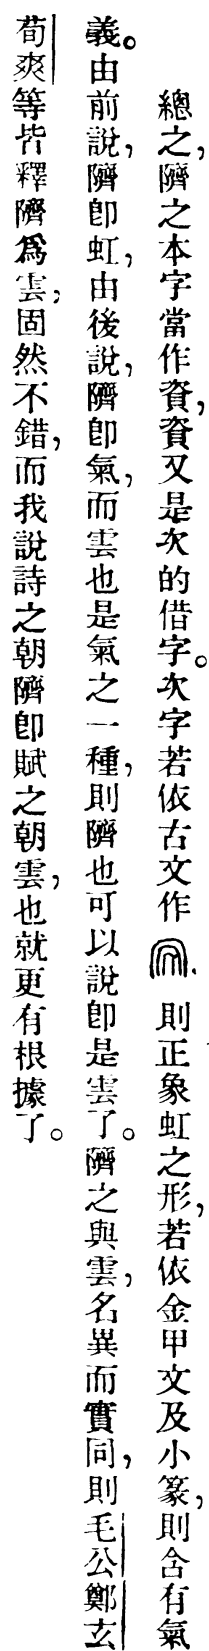 總之，隮之本字當作資，資又是次的借字。次字若依古文作　則正象虹之形，若依金甲文及小篆，則含有氣
義。由前說，隮卽虹，由後說，隮卽氣，而雲也是氣之一種，則隮也可以說卽是雲了。隮之與雲，名異而實同，則毛公鄭玄
荀爽等皆釋隮爲雲，固然不錯，而我說詩之朝隮卽賦之朝雲，也就更有根據了。